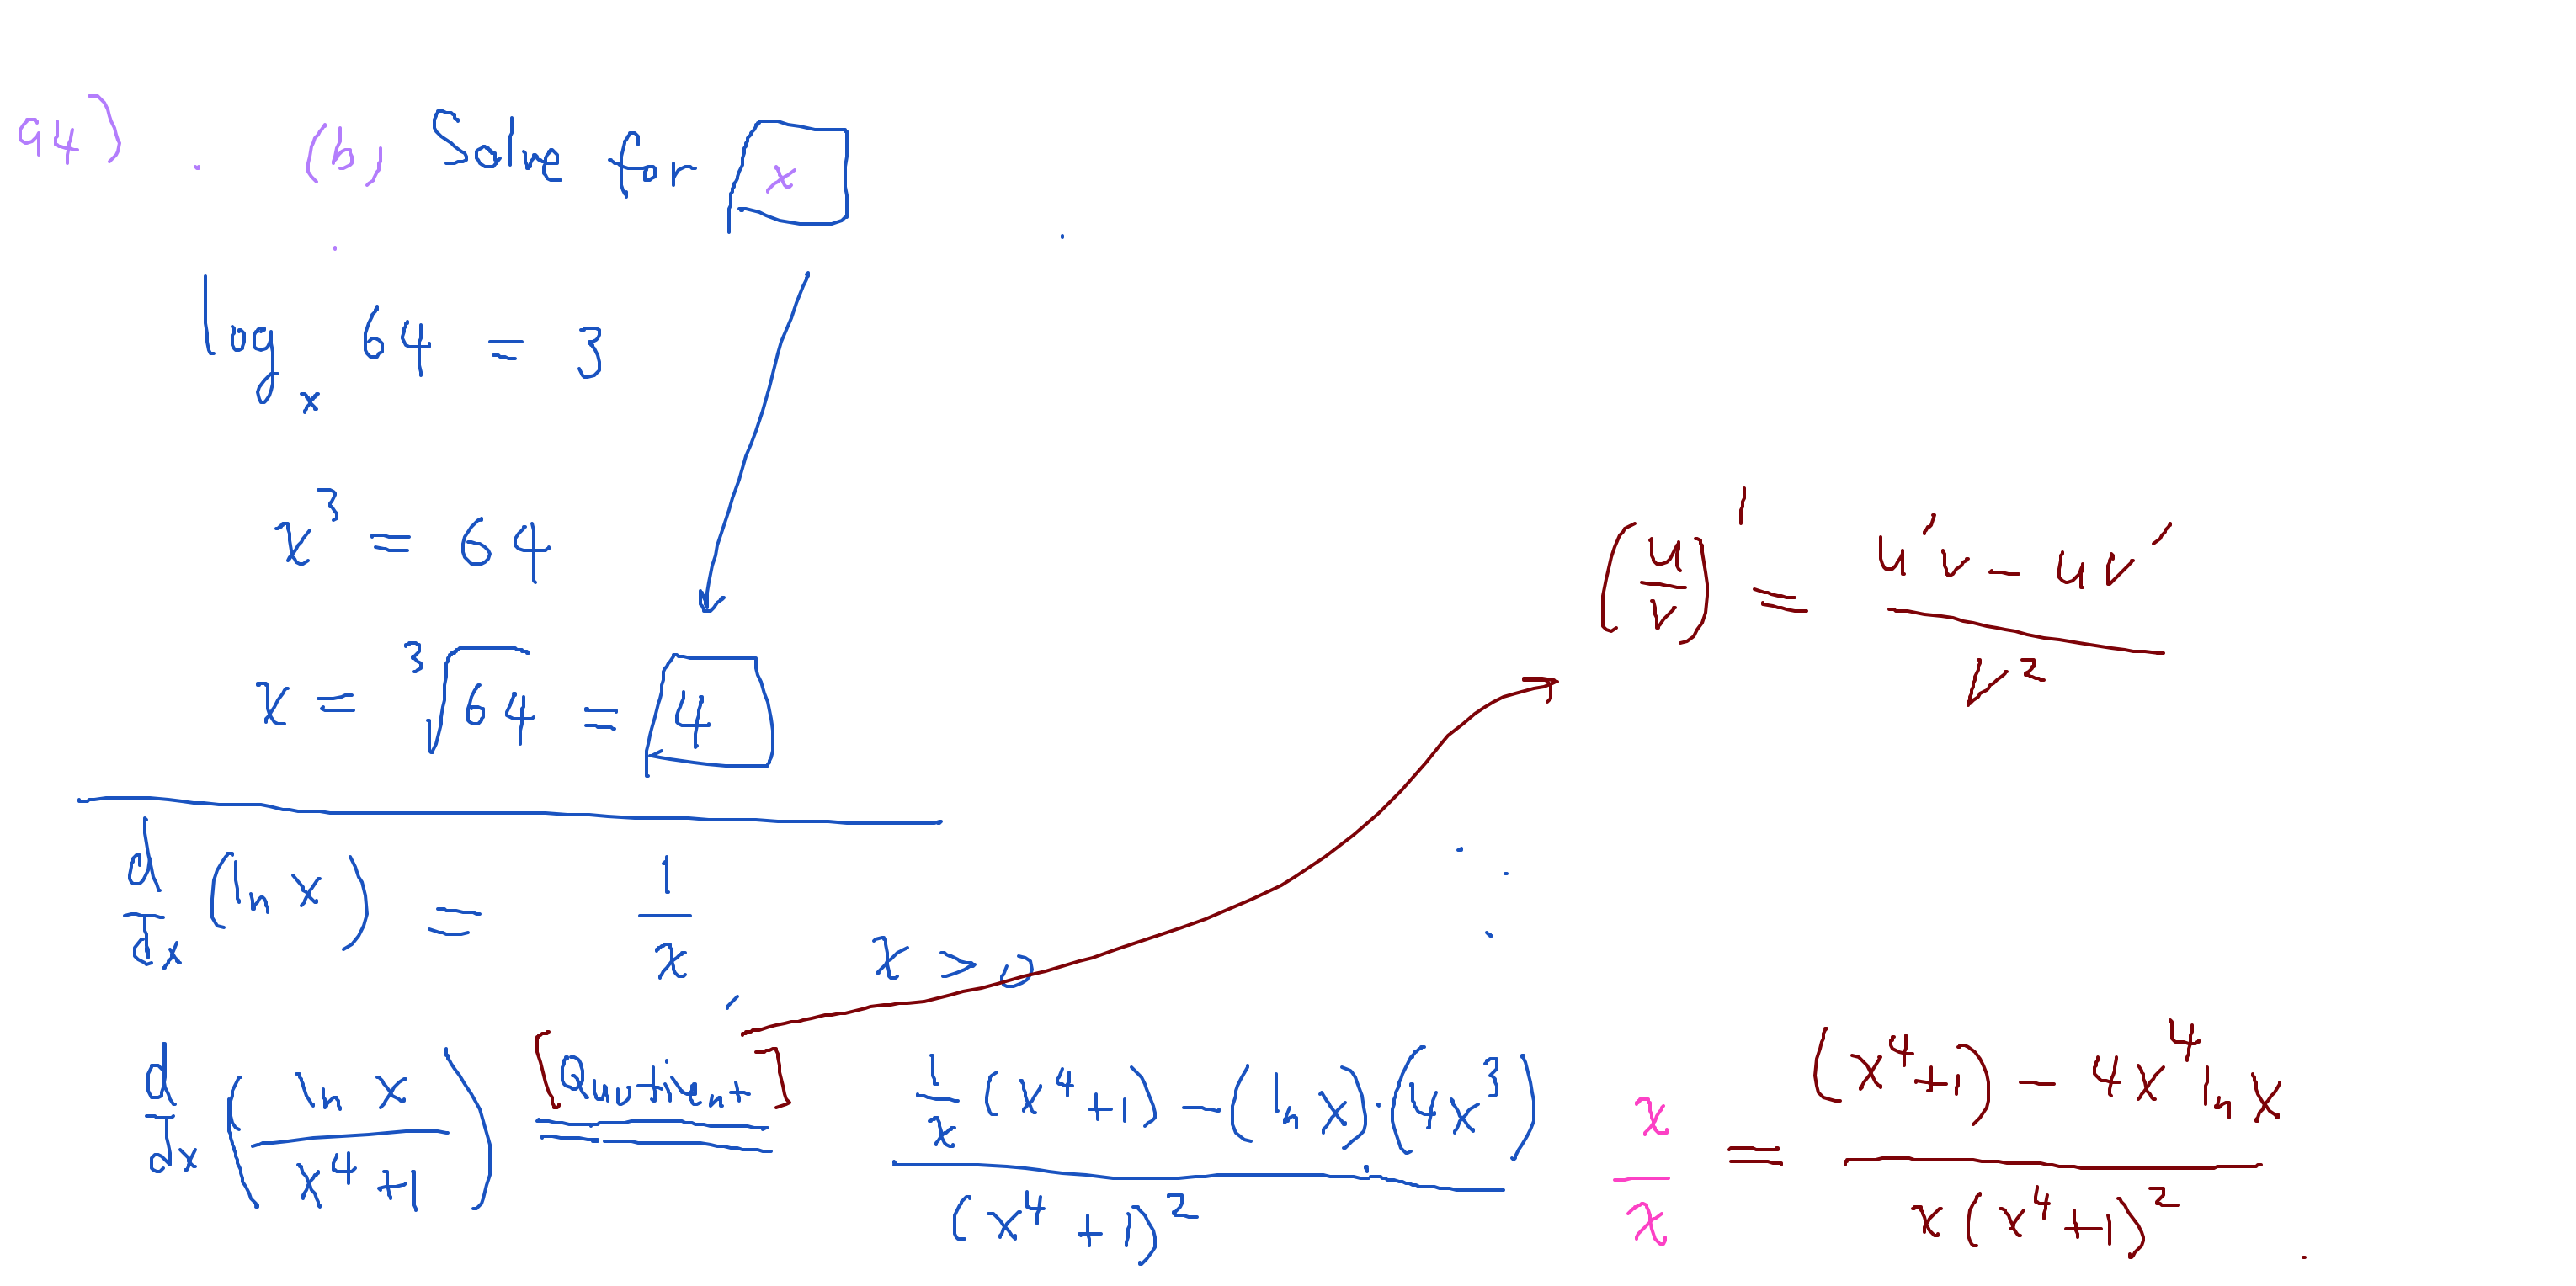 94) (b) Solve for x
log_x 64 = 3
x^3 = 64
x = ∛64 = 4
(u/v)' = (u'v - uv')/v^2
d/dx (ln x) = 1/x x > 0
d/dx (ln x/(x^4 + 1)) [Quotient] (1/x (x^4+1) - (ln x)·(4x^3))/(x^4 + 1)^2 x/x = ((x^4+1) - 4x^4 ln x)/(x(x^4+1)^2)